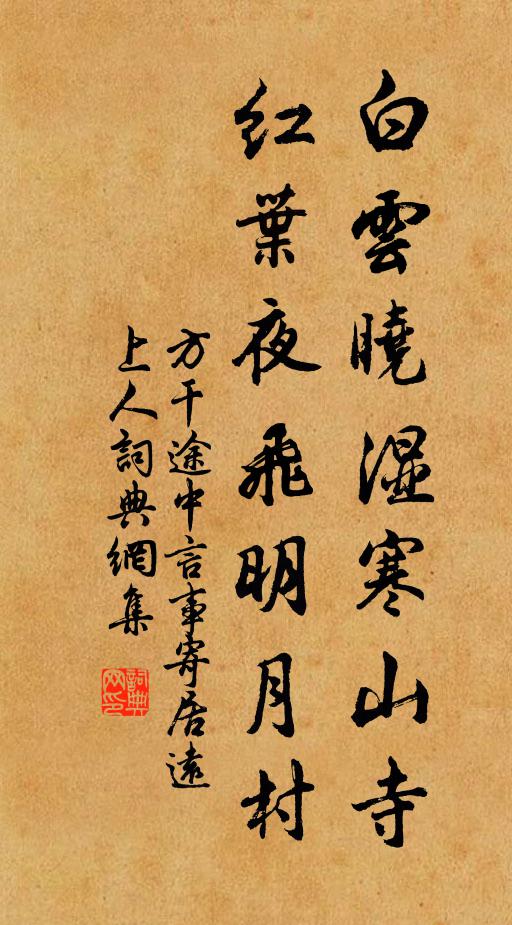 白雲曉濕寒山寺
紅葉夜飛明月村
方干途中言事寄居遠
上人詞典網集
詞典
网印